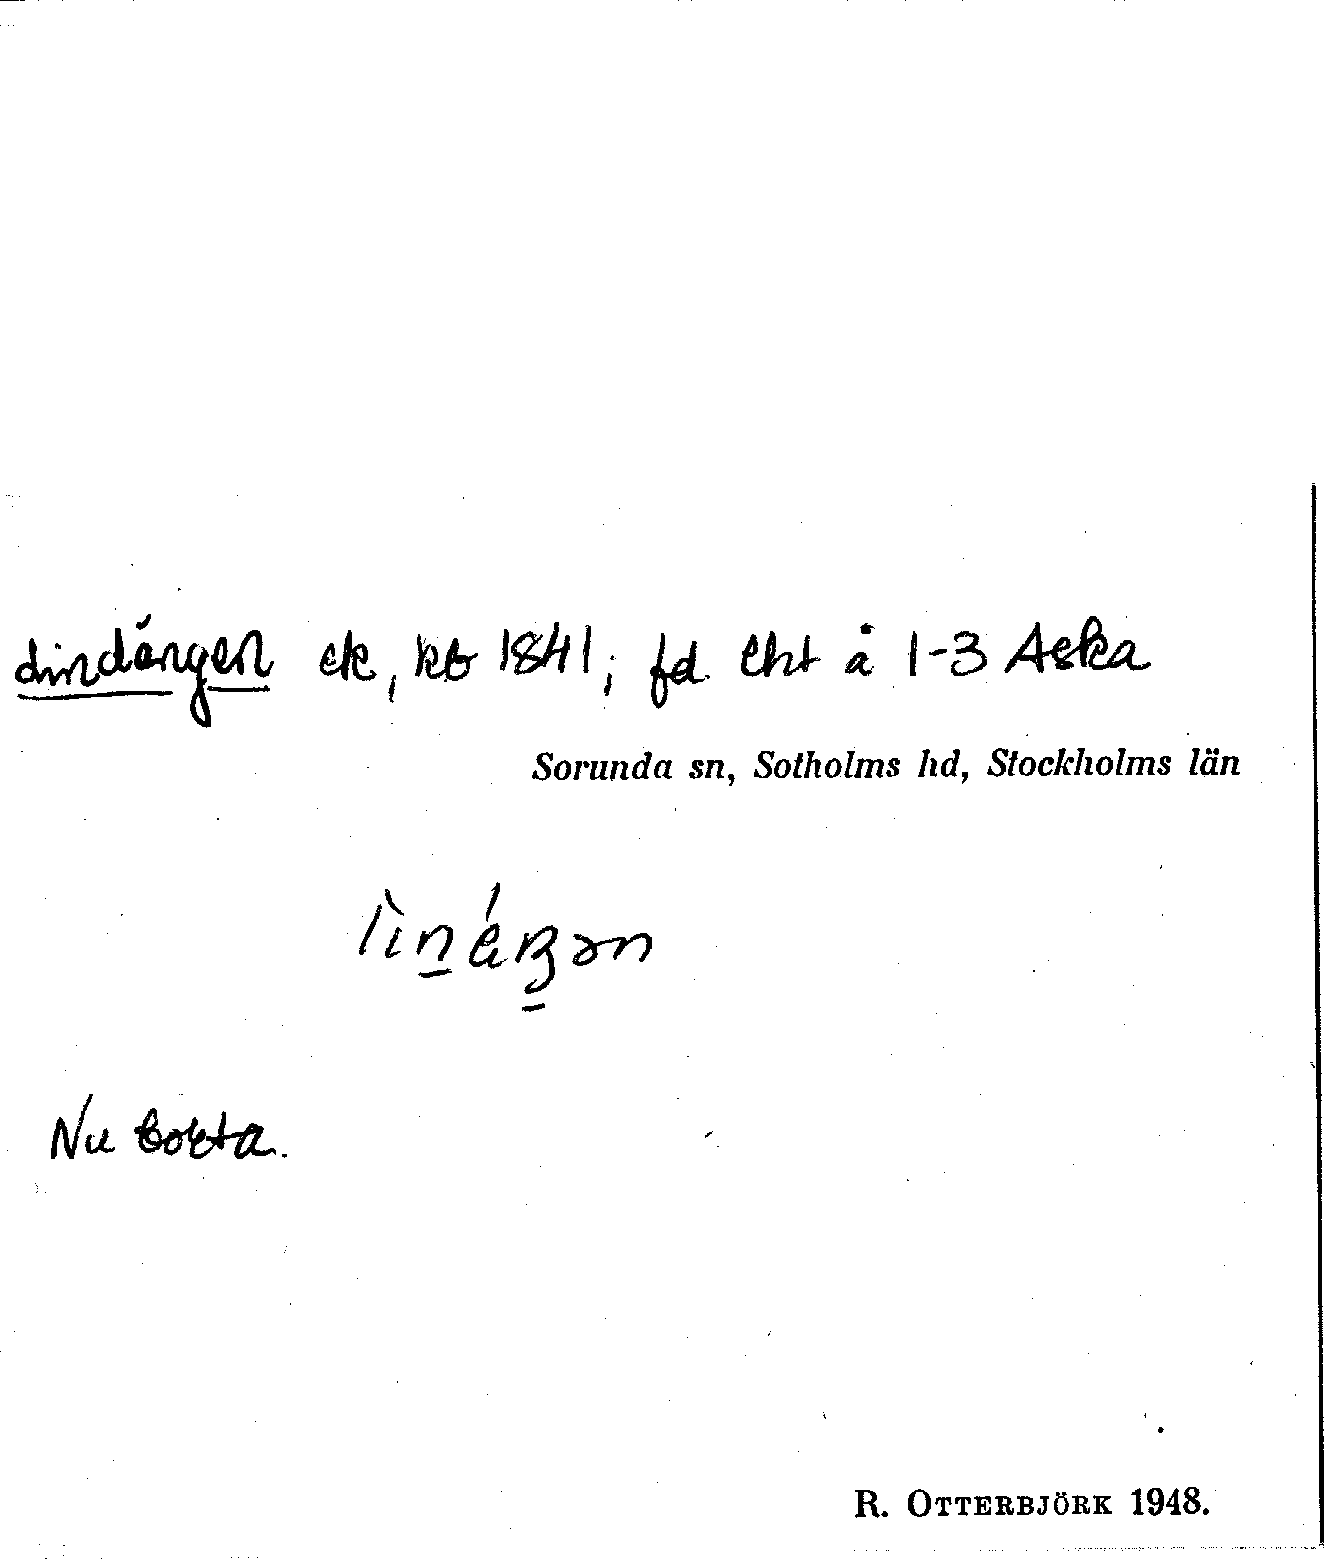 Lindängen ek, kb 1841; fd. lht å 1-3 Aska
Sorunda sn, Sotholms hd, Stockholms län
Nu borta.
R. OTTERBJÖRK 1948.